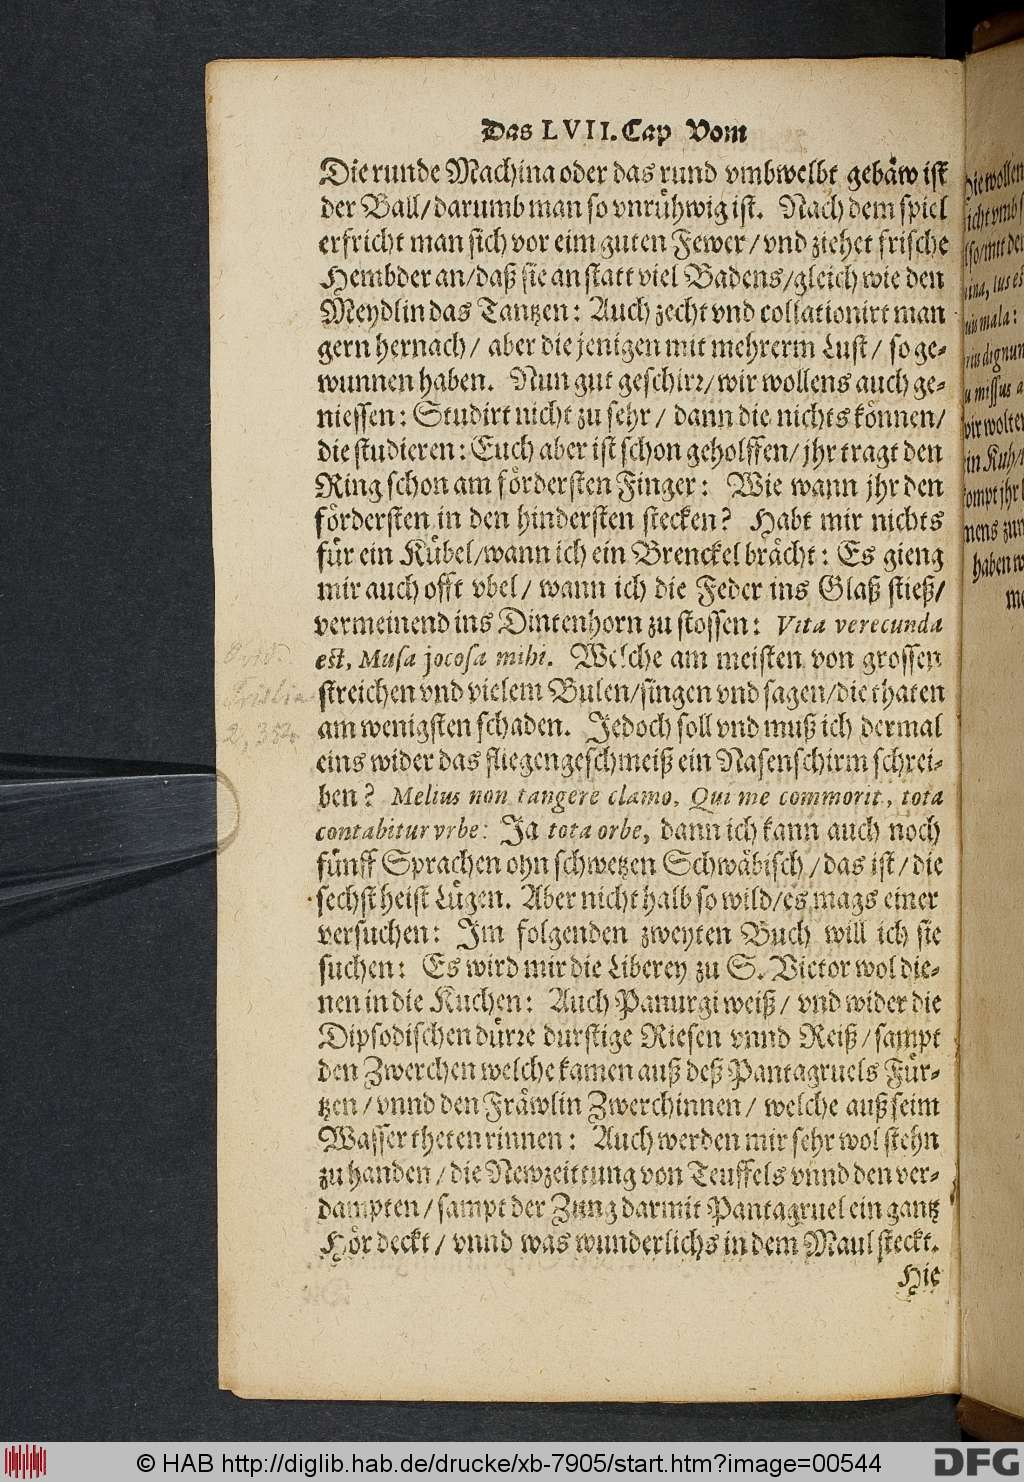 Das LVII. Cap Vom
Die runde Machina oder das rund vmbwelbt gebäw ist
der Ball/darumb man so vnrühwig ist. Nach dem spiel
erfricht man sich vor eim guten Fewer/vnd ziehet frische
Hembder an/daß sie an statt viel Badens/gleich wie den
Meydlin das Tantzen: Auch zecht vnd collationirt man
gern hernach/ aber die jenigen mit mehrerm Lust/ so ge-
wunnen haben. Nun gut geschirr/wir wollens auch ge-
niessen: Studirt nicht zu sehr/ dann die nichts können/
die studieren: Euch aber ist schon geholffen/ jhr tragt den
Ring schon am fördersten Finger: Wie wann jhr den
fördersten in den hindersten stecken? Habt mir nichts
für ein Kübel/wann ich ein Brenckel brächt: Es gieng
mir auch offt vbel/ wann ich die Feder ins Glaß stieß/
vermeinend ins Dintenhorn zu stossen: Vita verecunda
est, Musa jocosa mihi. Welche am meisten von grossen
streichen vnd vielem Bulen/singen vnd sagen/die thaten
am wenigsten schaden. Jedoch soll vnd muß ich dermal
eins wider das fliegengeschmeiß ein Nasenschirm schrei-
ben? Melius non tangere clamo, Qui me commorit, tota
contabitur vrbe: Ja tota orbe, dann ich kann auch noch
fünff Sprachen ohn schwetzen Schwäbisch/das ist/die
sechst heist Lügen. Aber nicht halb so wild/es mags einer
versuchen: Im folgenden zweyten Buch will ich sie
suchen: Es wird mir die Liberey zu S. Victor wol die-
nen in die Kuchen: Auch Panurgi weiß/ vnd wider die
Dipsodischen dürre durstige Riesen vnnd Reiß/sampt
den Zwerchen welche kamen auß deß Pantagruels Für-
tzen/vnnd den Fräwlin Zwerchinnen/ welche auß seim
Wasser theten rinnen: Auch werden mir sehr wol stehn
zu handen/die Newzeittung von Teuffels vnnd den ver-
dampten/sampt der Zung darmit Pantagruel ein gantz
Hör deckt/ vnnd was wunderlichs in dem Maul steckt.
Hie
Ovid
Tristia
2, 354
© HAB http://diglib.hab.de/drucke/xb-7905/start.htm?image=00544
DFG